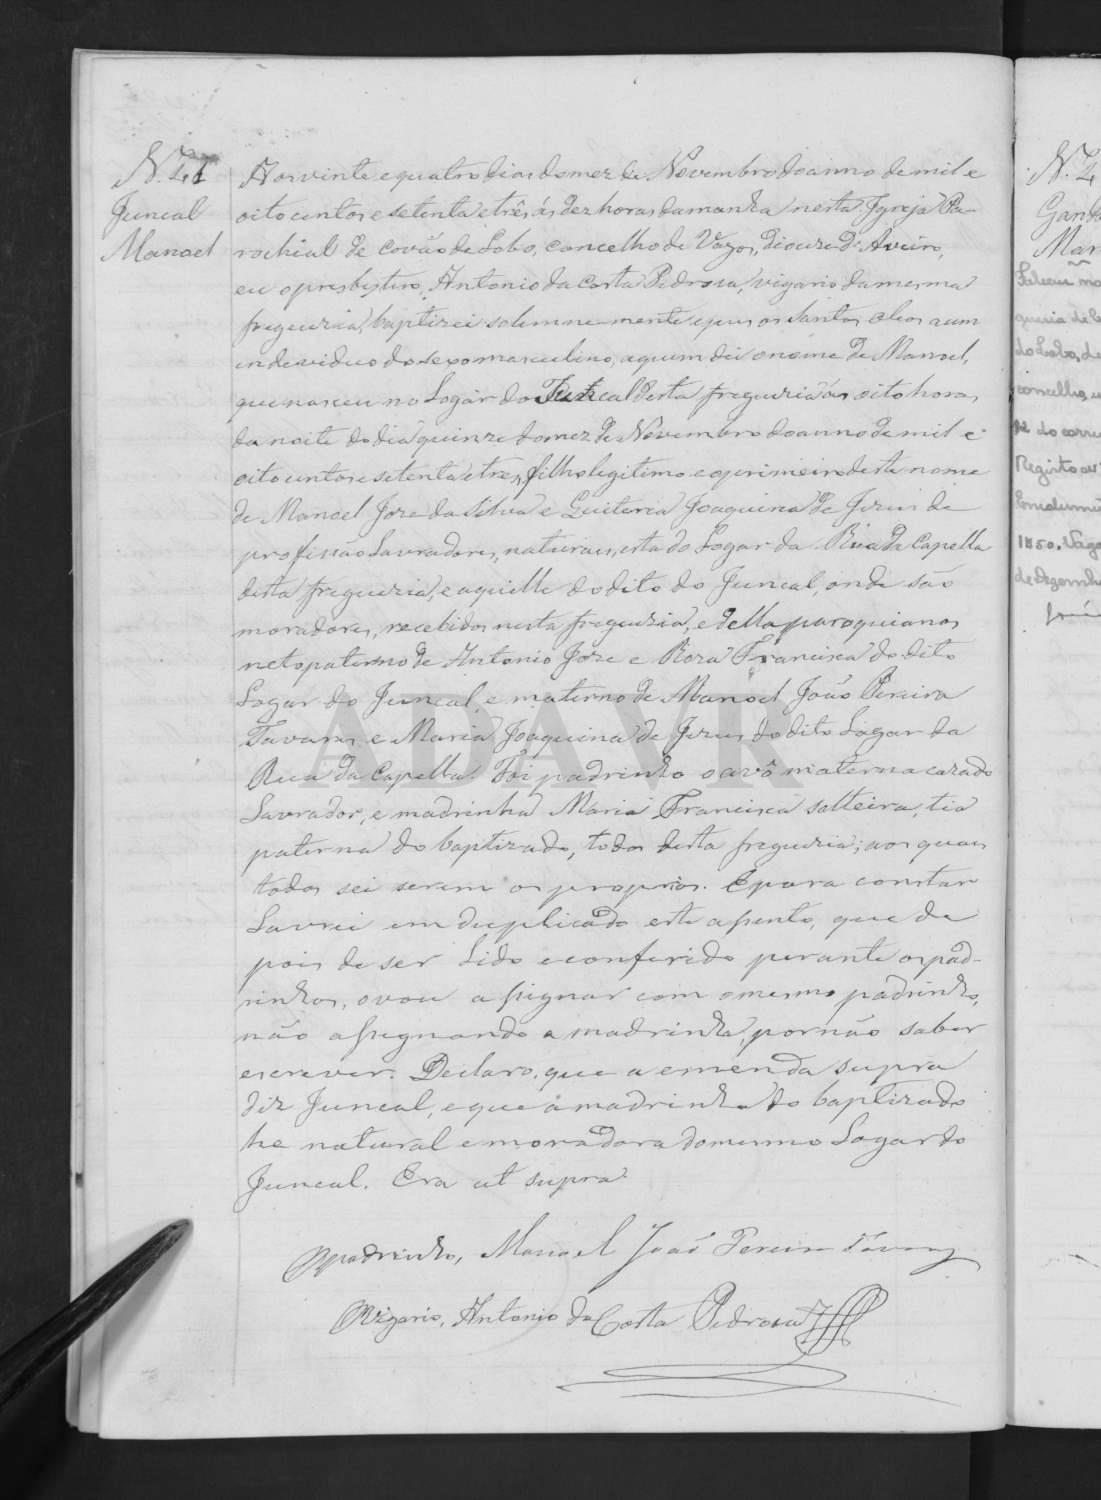 N. 41
Juncal
Manoel
Aos vinte e quatro dias do mez de Novembro do anno de mil e
oito centos e setenta e três, ás dez horas da manha nesta Igreja Pa-
rochial de Covão de Lobo, concelho de Vagos, diocese d'Aveiro,
eu o presbytero, Antonio da Costa Pedrosa, vigario da mesma
freguezia, baptizei solemne-mente e pus os Santos oleos a um
individuo do sexo masculino, a quem dei o nome de Manoel,
que nasceu no Logar do Juncal desta freguezia ás oito horas
da noite do dia quinze do mez de Novembro do anno de mil e
oito centos e setenta e tres, filho legitimo e o primeiro deste nome
de Manoel Joze da Silva e Quiteria Joaquina de Jezus de
profissão Lavradores, naturaes, esta do Logar da Rua da Capella
desta freguezia, e aquelle do dito do Juncal, onde são
moradores, recebidos nesta freguezia, e della paroquianos
neto paterno de Antonio Joze e Roza Francisca do dito
Logar do Juncal, e materno de Manoel João Pereira
Tavares e Maria Joaquina de Jezus do dito Logar da
Rua da Capella. Foi padrinho o avô materno cazado
Lavrador, e madrinha Maria Francisca solteira, tia
paterna do baptizado, todos desta freguezia; aos quaes
todos sei serem os proprios. E para constar
Lavrei em duplicado este assento, que de
pois de ser Lido e conferido perante os pad-
rinhos, o vou assignar com o mesmo padrinho,
não assignando a madrinha, por não saber
escrever. Declaro, que a emenda supra
diz Juncal, e que a madrinha do baptizado
he natural e moradora do mesmo Logar do
Juncal. Era ut supra
O padrinho, Manoel João Pereira Tavares
O Vigario, Antonio da Costa Pedrosa
ADAVR
N. 4
Ganda
Man
Faleceu na
do Lobo, de
concelho
Registo
1950. Vago
de Dezemb